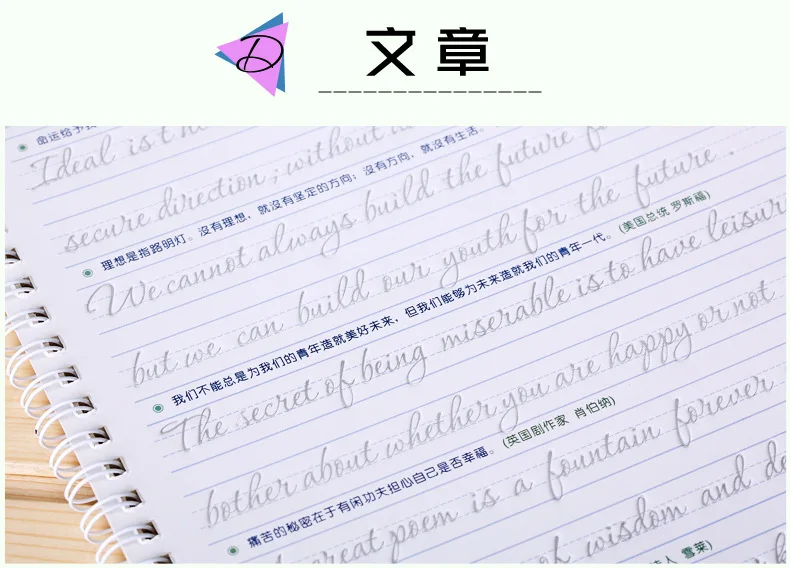 D
文章
命运给予
Ideal is the
secure direction; without
理想是指路明灯。沒有理想，就沒有坚定的方向；沒有方向，就沒有生活。
We cannot always build the future f
but we can build our youth for the future.
我们不能总是为我们的青年造就美好未来，但我们能够为未来造就我们的青年一代。 (美国总统 罗斯福)
The secret of being miserable is to have leisur
bother about whether you are happy or not
痛苦的秘密在于有闲功夫担心自己是否幸福。 (英国剧作家 肖伯纳)
great poem is a fountain forever
of wisdom and de
雪莱)